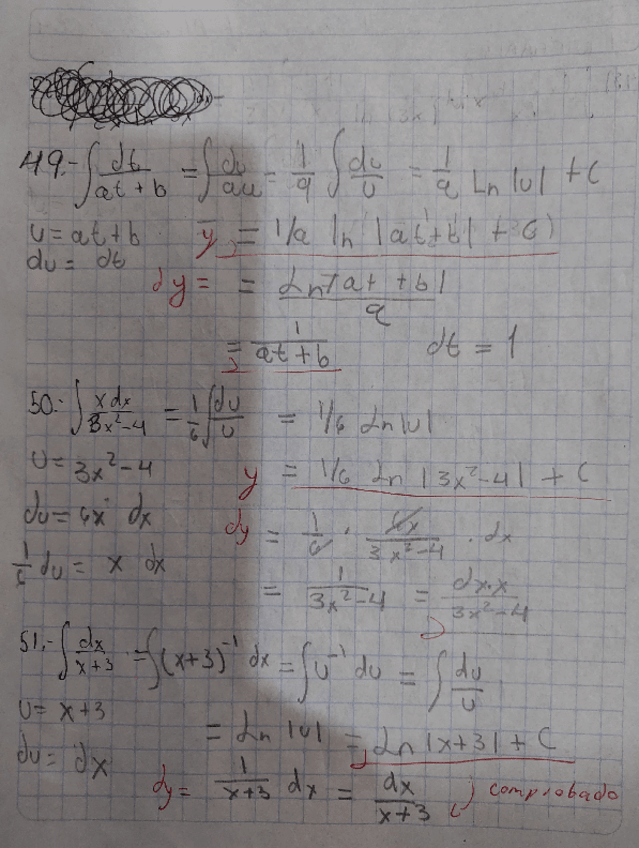 49.- ∫ dt/(at + b) = ∫ du/(au) = 1/a ∫ du/u = 1/a Ln |u| + C
u = at + b   y = 1/a ln |at + b| + C
du = dt
dy = = Ln |at + b| / a
= 1/(at + b)   dt = 1
50.- ∫ x dx/(3x² - 4) = 1/6 ∫ du/u = 1/6 Ln |u|
u = 3x² - 4   y = 1/6 Ln |3x² - 4| + C
du = 6x dx   dy = 1/6 · 6x/(3x² - 4) · dx
1/6 du = x dx
= 1/(3x² - 4) = dx·x/(3x² - 4)
51.- ∫ dx/(x + 3) = ∫ (x + 3)⁻¹ dx = ∫ u⁻¹ du = ∫ du/u
u = x + 3
= Ln |u| = Ln |x + 3| + C
du = dx
dy = 1/(x + 3) dx = dx/(x + 3) comprobado